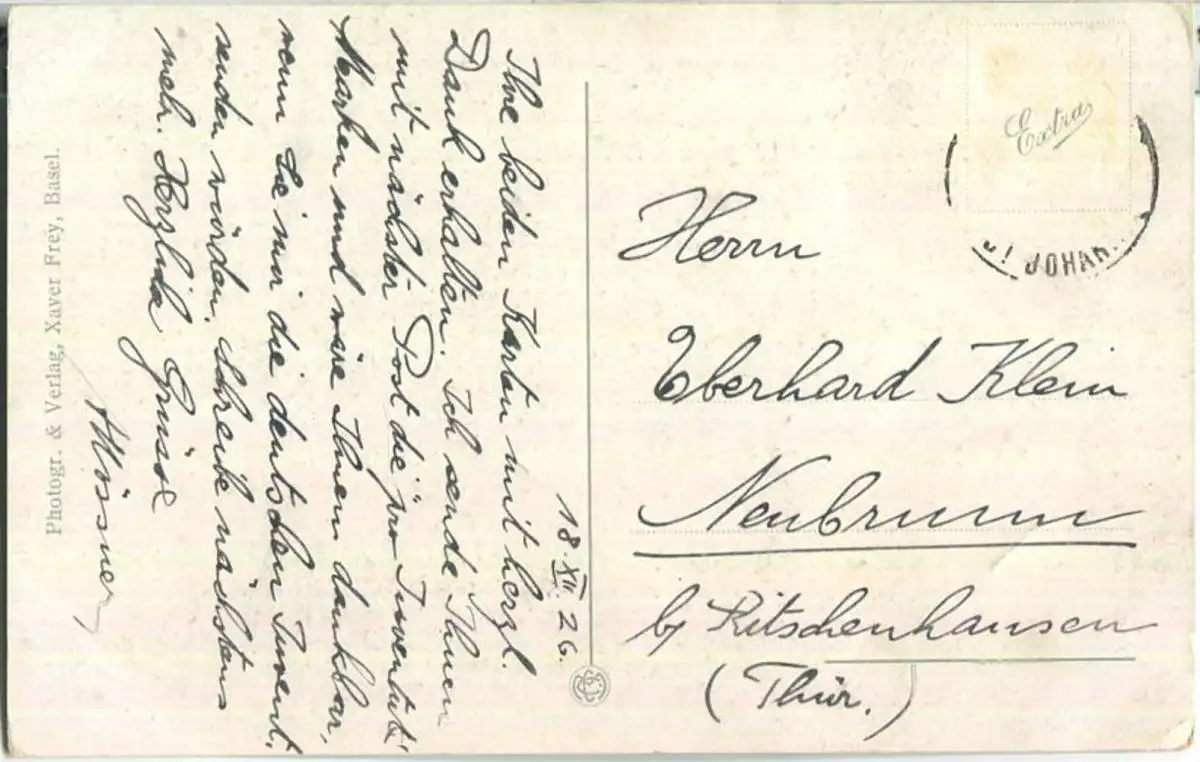 18. XII. 26.
Ihre beiden Karten mit herzl.
Dank erhalten. Ich sende Ihnen
mit nächster Post die pro Juventute
Marken und wäre Ihnen dankbar,
wenn Sie mir die deutschen Juvent.
senden würden. Schreibe nächstens
mehr. Herzliche Grüsse
Photogr. & Verlag, Xaver Frey, Basel.
Extra
JOHAN
Herrn
Eberhard Klein
Neubrunn
b/ Ritschenhausen
(Thür.)